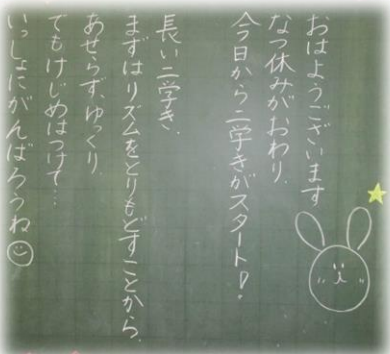 おはようございます
なつ休みがおわり、
今日から二学きがスタート!
長い二学き、
まずはリズムをとりもどすことから、
あせらず、ゆっくり、
でもけじめはつけて…
いっしょにがんばろうね